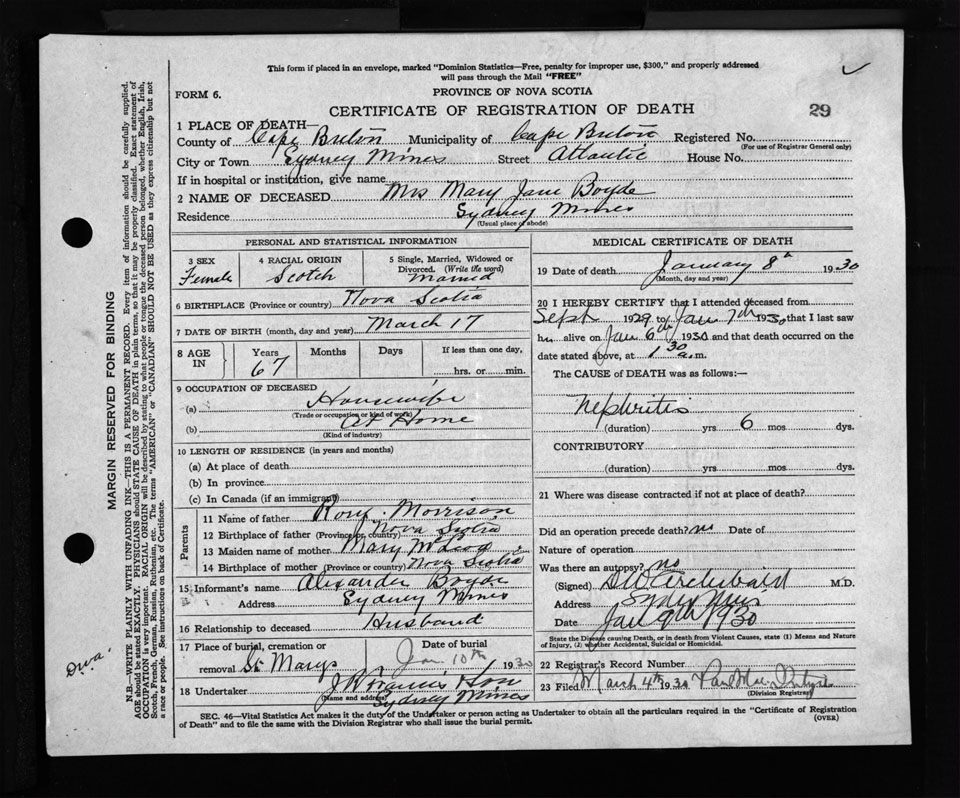 This form if placed in an envelope, marked "Dominion Statistics—Free, penalty for improper use, $300," and properly addressed
will pass through the Mail "FREE"
FORM 6.
PROVINCE OF NOVA SCOTIA
CERTIFICATE OF REGISTRATION OF DEATH
29
1 PLACE OF DEATH—
County of Cape Breton Municipality of Cape Breton Registered No.
(For use of Registrar General only)
City or Town Sydney Mines Street Atlantic House No.
If in hospital or institution, give name
2 NAME OF DECEASED Mrs Mary Jane Boyde
Residence Sydney Mines
(Usual place of abode)
PERSONAL AND STATISTICAL INFORMATION
3 SEX Female
4 RACIAL ORIGIN Scotch
5 Single, Married, Widowed or Divorced. (Write the word) Married
6 BIRTHPLACE (Province or country) Nova Scotia
7 DATE OF BIRTH (month, day and year) March 17
8 AGE IN Years 67 Months Days If less than one day, hrs. or min.
9 OCCUPATION OF DECEASED
(a) Housewife
(Trade or occupation or kind of work)
(b) At Home
(Kind of industry)
10 LENGTH OF RESIDENCE (in years and months)
(a) At place of death
(b) In province
(c) In Canada (if an immigrant)
Parents
11 Name of father Morrison
12 Birthplace of father (Province or country) Nova Scotia
13 Maiden name of mother Mary
14 Birthplace of mother (Province or country) Nova Scotia
15 Informant's name Alexander Boyde
Address Sydney Mines
16 Relationship to deceased Husband
17 Place of burial, cremation or Date of burial
removal St Marys Jan 10th 1930
18 Undertaker Son
(Name and address) Sydney Mines
MEDICAL CERTIFICATE OF DEATH
19 Date of death January 8th 1930
(Month, day and year)
20 I HEREBY CERTIFY that I attended deceased from
Sept 1929 to Jan 7th 1930 that I last saw
her alive on Jan 6th 1930 and that death occurred on the
date stated above, at 1.30 a.m.
The CAUSE of DEATH was as follows:—
Nephritis
(duration) yrs 6 mos dys.
CONTRIBUTORY
(duration) yrs mos dys.
21 Where was disease contracted if not at place of death?
Did an operation precede death? no Date of
Nature of operation
Was there an autopsy? no
(Signed) Archibald M.D.
Address Sydney Mines
Date Jan 9th 1930
State the Disease causing Death, or in death from Violent Causes, state (1) Means and Nature
of Injury, (2) whether Accidental, Suicidal or Homicidal.
22 Registrar's Record Number
23 Filed March 4th 1930
(Division Registrar)
SEC. 46—Vital Statistics Act makes it the duty of the Undertaker or person acting as Undertaker to obtain all the particulars required in the "Certificate of Registration
of Death" and to file the same with the Division Registrar who shall issue the burial permit.
(OVER)
MARGIN RESERVED FOR BINDING
N.B.—WRITE PLAINLY WITH UNFADING INK—THIS IS A PERMANENT RECORD. Every item of information should be carefully supplied.
AGE should be stated EXACTLY. PHYSICIANS should STATE CAUSE OF DEATH in plain terms, so that it may be properly classified. Exact statement of
OCCUPATION is very important. RACIAL ORIGIN will be described by stating to what people or tongue the deceased person belonged, whether English, Irish,
Scotch, French, German, Russian, Ruthenian, etc. The terms "AMERICAN" or "CANADIAN" SHOULD NOT BE USED as they express citizenship but not
a race or people. See instructions on back of Certificate.